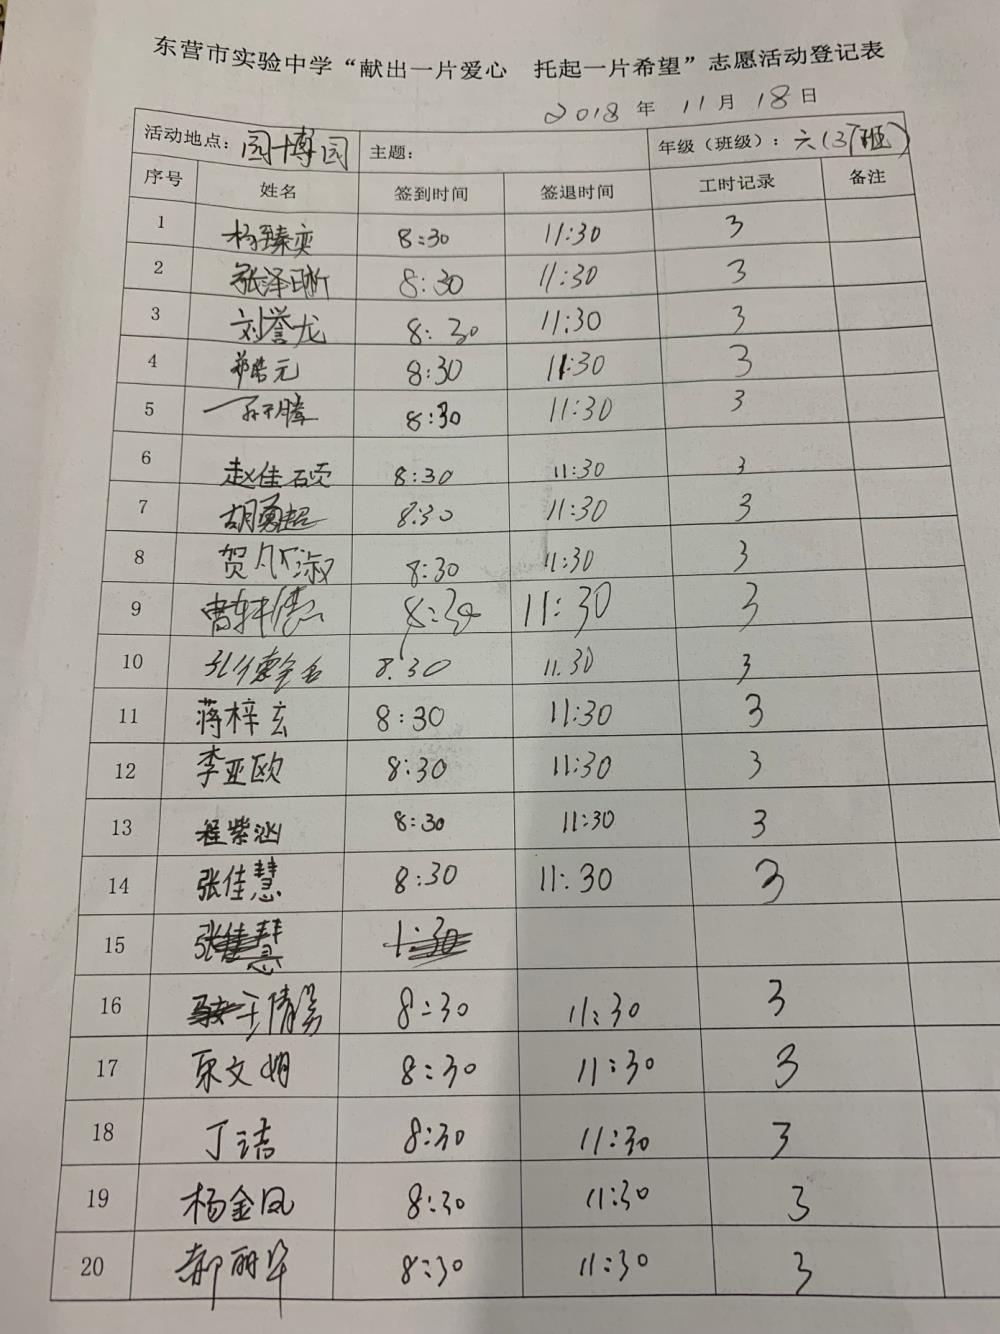 东营市实验中学“献出一片爱心 托起一片希望”志愿活动登记表
2018 年 11 月 18 日
活动地点: 园博园 主题: 年级（班级）: 六(3)班
序号 姓名 签到时间 签退时间 工时记录 备注
1 杨臻奕 8:30 11:30 3
2 张泽晰 8:30 11:30 3
3 刘誉龙 8:30 11:30 3
4 浩元 8:30 11:30 3
5 8:30 11:30 3
6 赵佳硕 8:30 11:30 3
7 胡勇超 8:30 11:30 3
8 贺 淑 8:30 11:30 3
9 曹轩德 8:30 11:30 3
10 8:30 11.30 3
11 蒋梓玄 8:30 11:30 3
12 李亚欧 8:30 11:30 3
13 程紫汹 8:30 11:30 3
14 张佳慧 8:30 11:30 3
15 张佳慧 1:30
16 王倩 8:30 11:30 3
17 宋文娟 8:30 11:30 3
18 丁洁 8:30 11:30 3
19 杨金凤 8:30 11:30 3
20 郝丽华 8:30 11:30 3